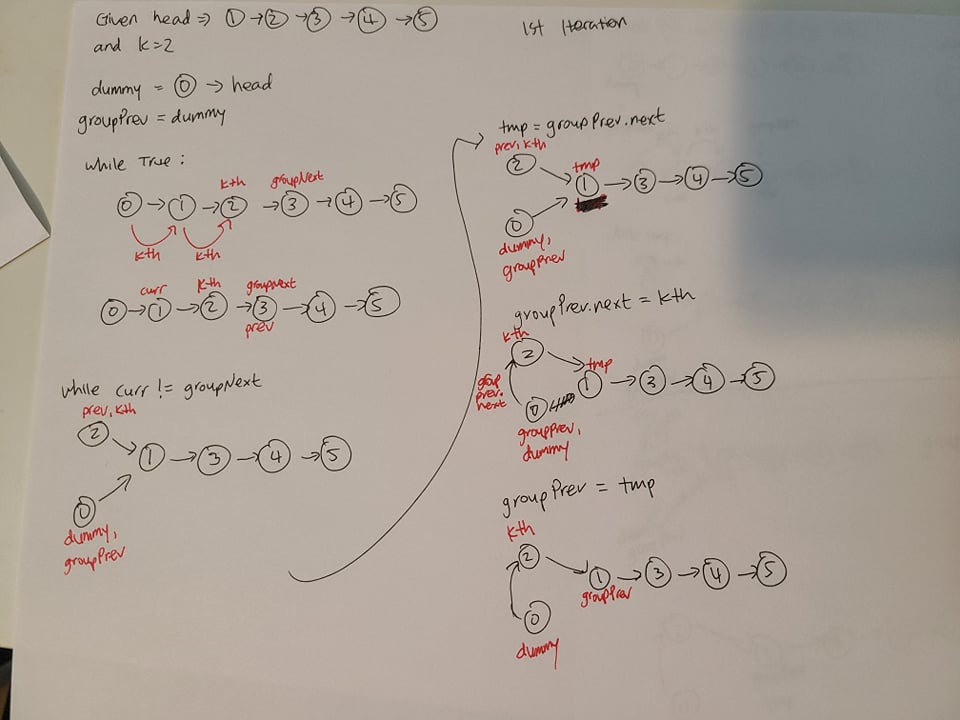 Given head => 1 → 2 → 3 → 4 → 5
and k=2
dummy = 0 → head
groupPrev = dummy
while True :
kth groupNext
0 → 1 → 2 → 3 → 4 → 5
kth kth
curr kth groupNext
0 → 1 → 2 → 3 → 4 → 5
prev
while curr != groupNext
prev, kth
2
1 → 3 → 4 → 5
0
dummy,
groupPrev
1st Iteration
tmp = groupPrev.next
prev, kth
2 tmp
1 → 3 → 4 → 5
0
dummy,
groupPrev
groupPrev.next = kth
kth
2 tmp
group
prev.
next
1 → 3 → 4 → 5
0
groupPrev,
dummy
groupPrev = tmp
kth
2
1 → 3 → 4 → 5
groupPrev
0
dummy